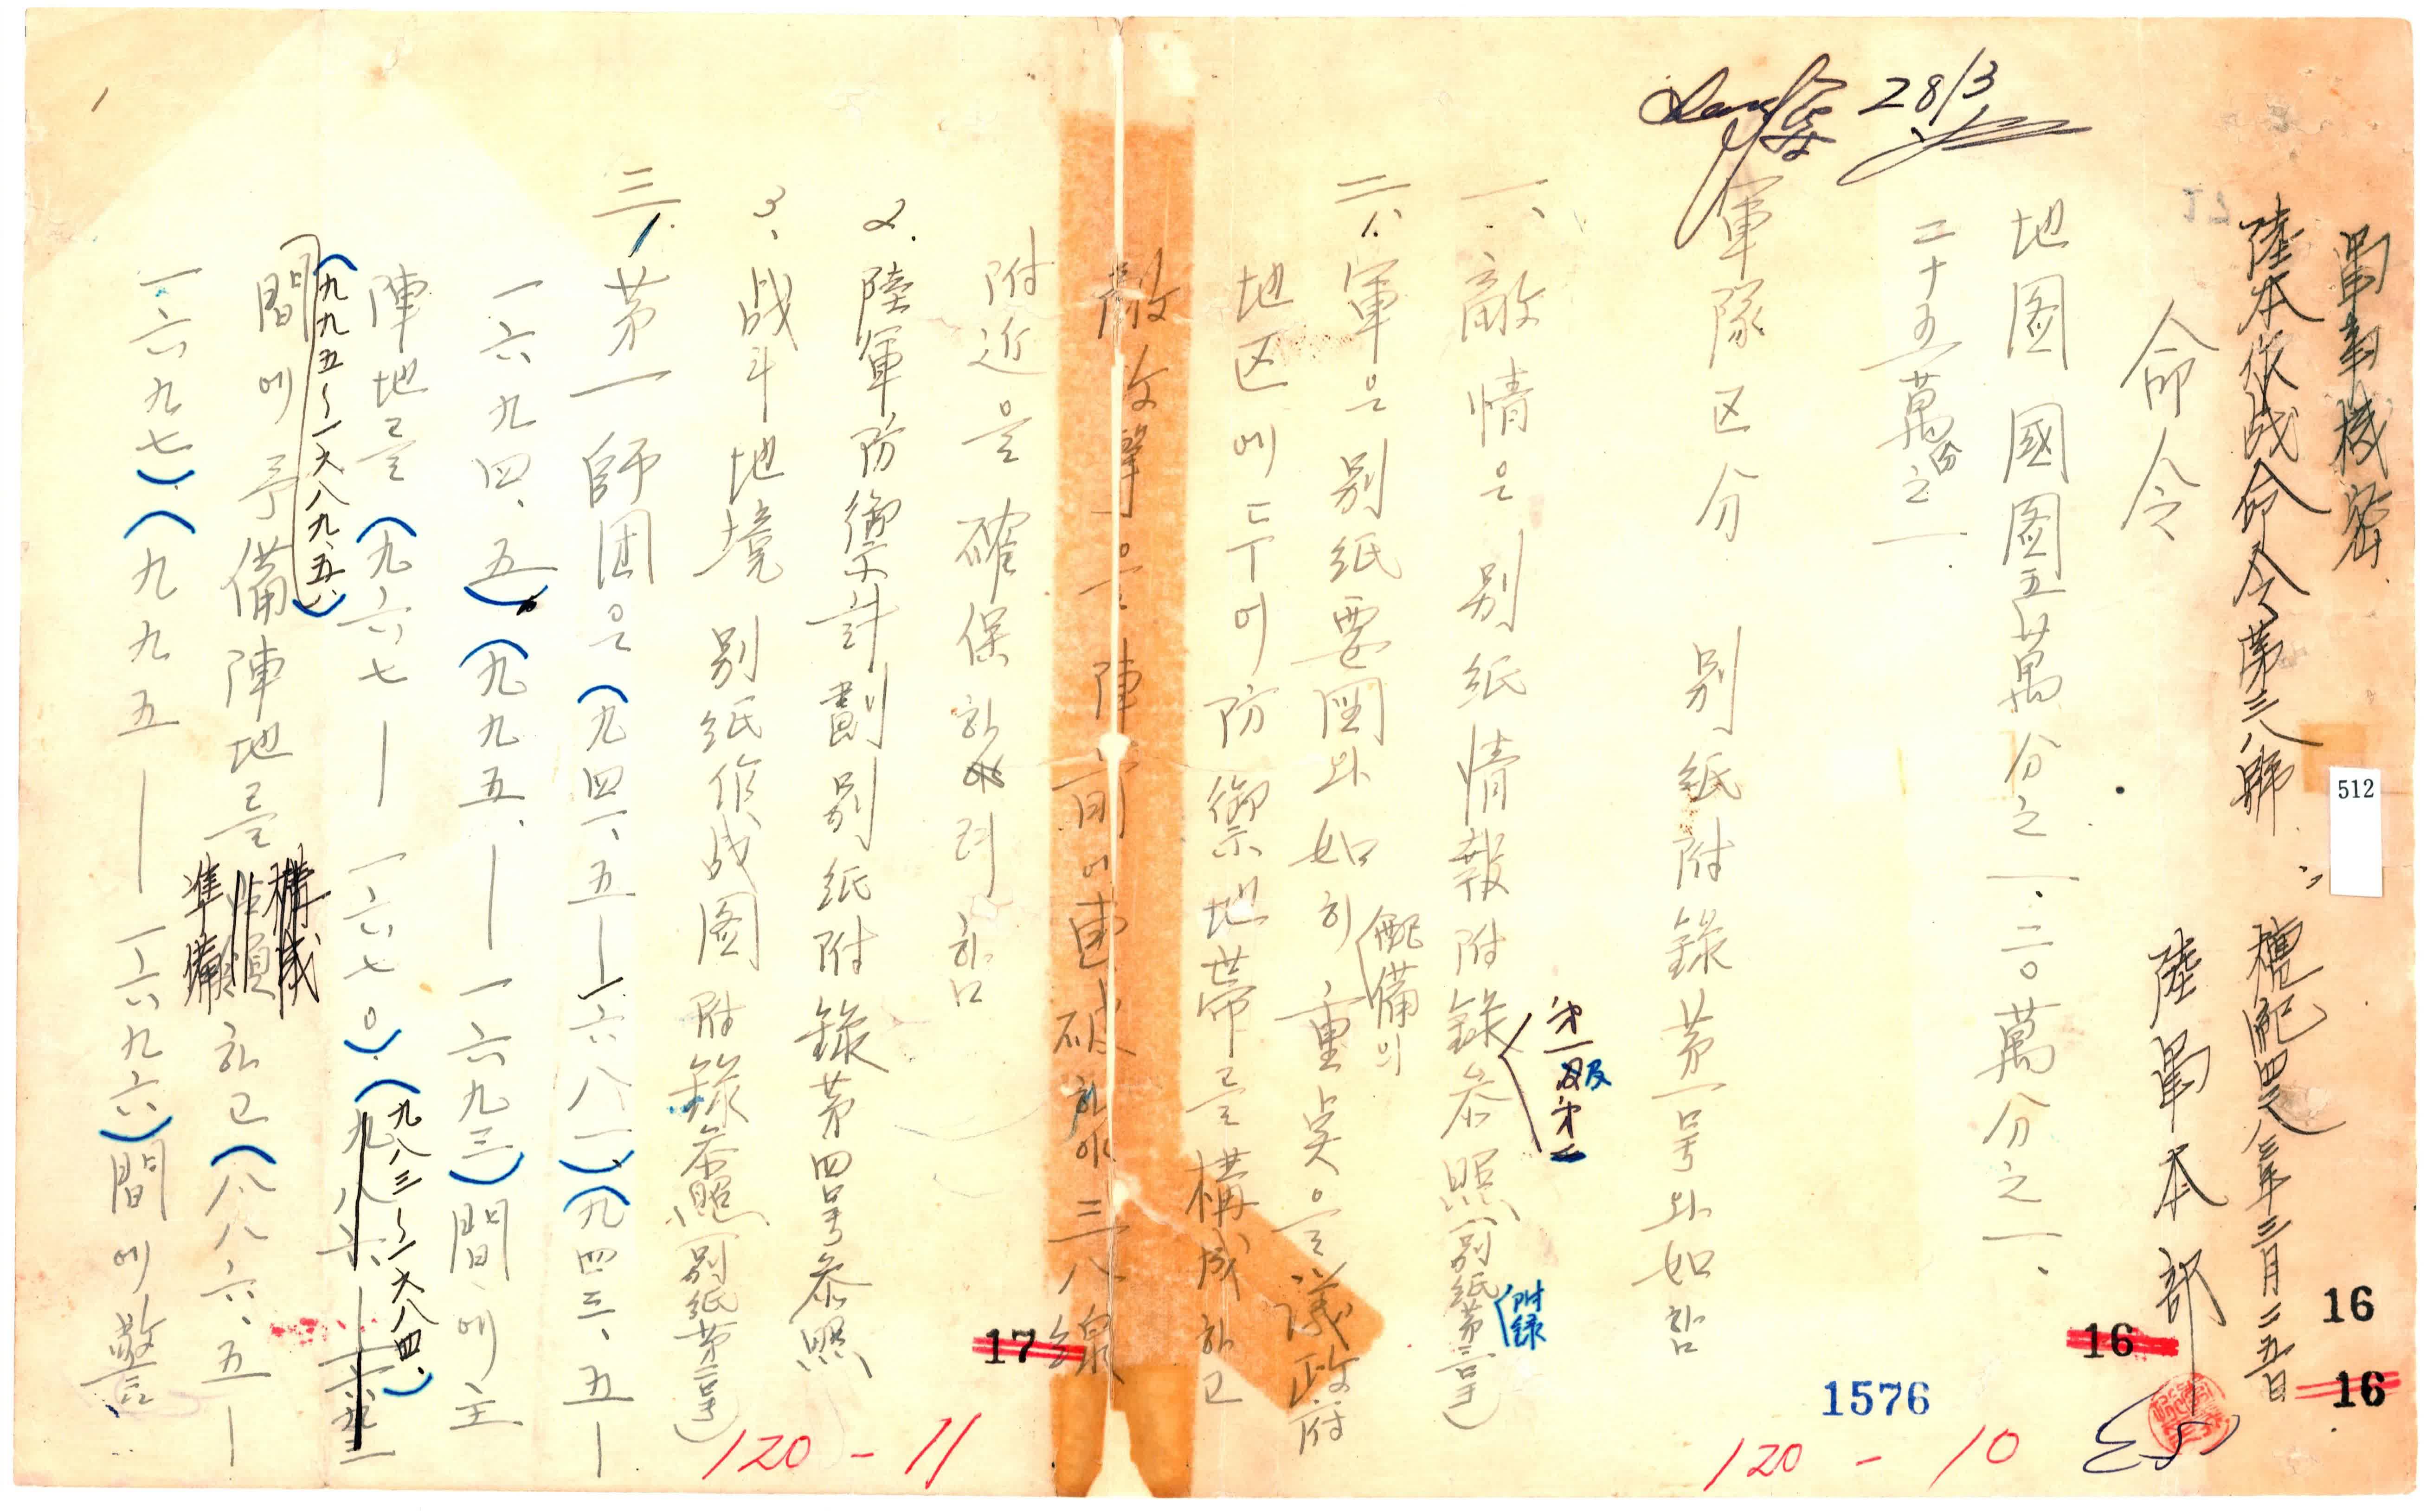 軍事機密
陸本作战命令第三八號
檀紀四二八三年三月二五日
命令
陸軍本部
地図 國図五萬分之一、二〇萬分之一、
二十五萬分之一
28/3
軍隊区分 別紙附錄第一号와如함
一、敵情은別紙情報附錄第一及第二参照(別紙附録第三号)
二、1. 軍은別紙要図와如히配備의重点을議政府
地区에두어防禦地帯를構成하고
敵攻擊을陣前에擊破하야三八線
附近을確保하려함
2. 陸軍防禦計劃別紙附錄第四号参照
3、战斗地境 別紙作战図附錄参照(別紙第二号)
三、1、第一師団은(九四一、五—一六八一)(九四三、五—
一六九四、五)(九九五、—一六九三)間에主
陣地를(九六七—一六七〇)(九八三~一六八四、)
(九九五~一六八九、五、)
間에予備陣地를準備하고(八八六、五—
一六九七)(九九五—一六九六)間에警
512
16
16
16
17
1576
120-10
120-11